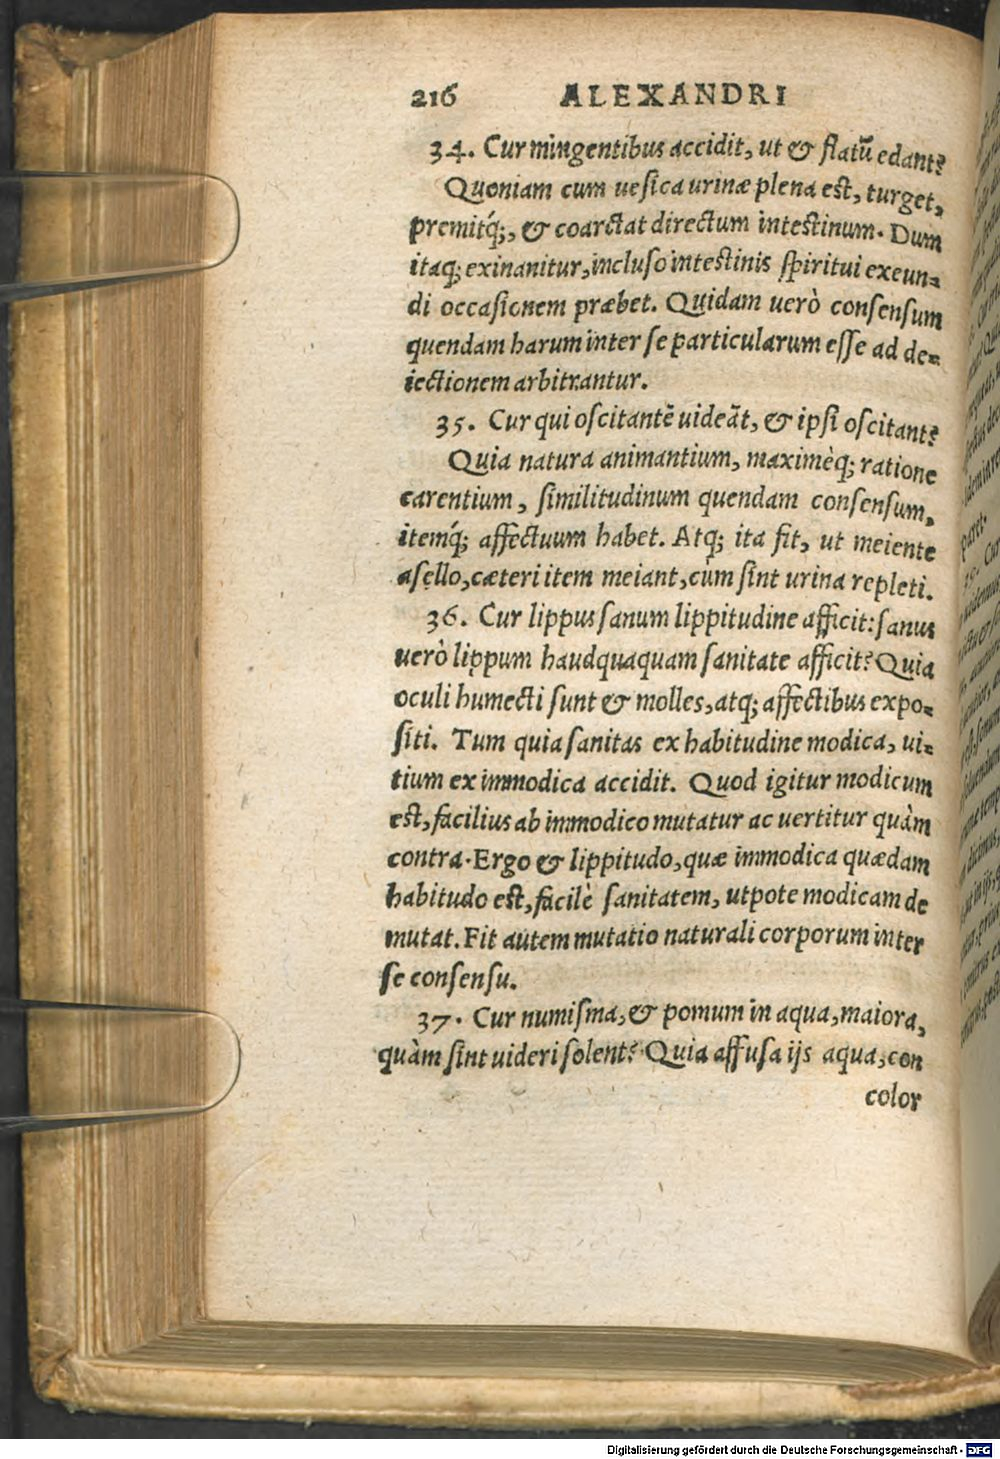 216 ALEXANDRI
34. Cur mingentibus accidit, ut & flatũ edant?
Quoniam cum uesica urinæ plena est, turget,
premitq́;, & coarctat directum intestinum. Dum
itaq; exinanitur, incluso intestinis spiritui exeun-
di occasionem præbet. Quidam uerò consensum
quendam harum inter se particularum esse ad de-
iectionem arbitrantur.
35. Cur qui oscitantẽ uideãt, & ipsi oscitant?
Quia natura animantium, maximèq; ratione
carentium, similitudinum quendam consensum,
itemq́; affectuum habet. Atq; ita fit, ut meiente
asello, cæteri item meiant, cùm sint urina repleti.
36. Cur lippus sanum lippitudine afficit: sanus
uerò lippum haudquaquam sanitate afficit? Quia
oculi humecti sunt & molles, atq; affectibus expo-
siti. Tum quia sanitas ex habitudine modica, ui-
tium ex immodica accidit. Quod igitur modicum
est, facilius ab immodico mutatur ac uertitur quàm
contra. Ergo & lippitudo, quæ immodica quædam
habitudo est, facilè sanitatem, utpote modicam de
mutat. Fit autem mutatio naturali corporum inter
se consensu.
37. Cur numisma, & pomum in aqua, maiora,
quàm sint uideri solent? Quia affusa ijs aqua, con
color
Digitalisierung gefördert durch die Deutsche Forschungsgemeinschaft - DFG